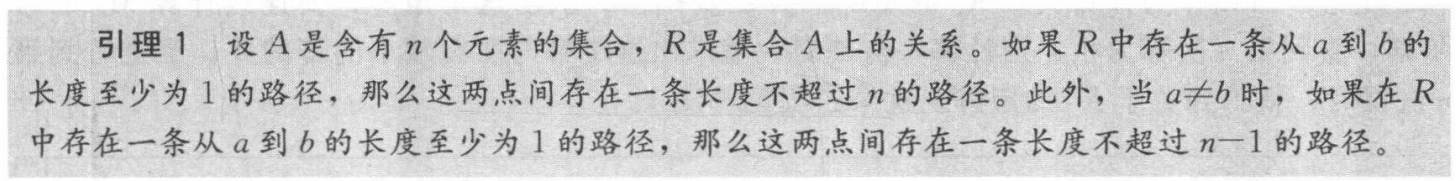 引理 1 设 A 是含有 n 个元素的集合，R 是集合 A 上的关系。如果 R 中存在一条从 a 到 b 的
长度至少为 1 的路径，那么这两点间存在一条长度不超过 n 的路径。此外，当 a≠b 时，如果在 R
中存在一条从 a 到 b 的长度至少为 1 的路径，那么这两点间存在一条长度不超过 n－1 的路径。